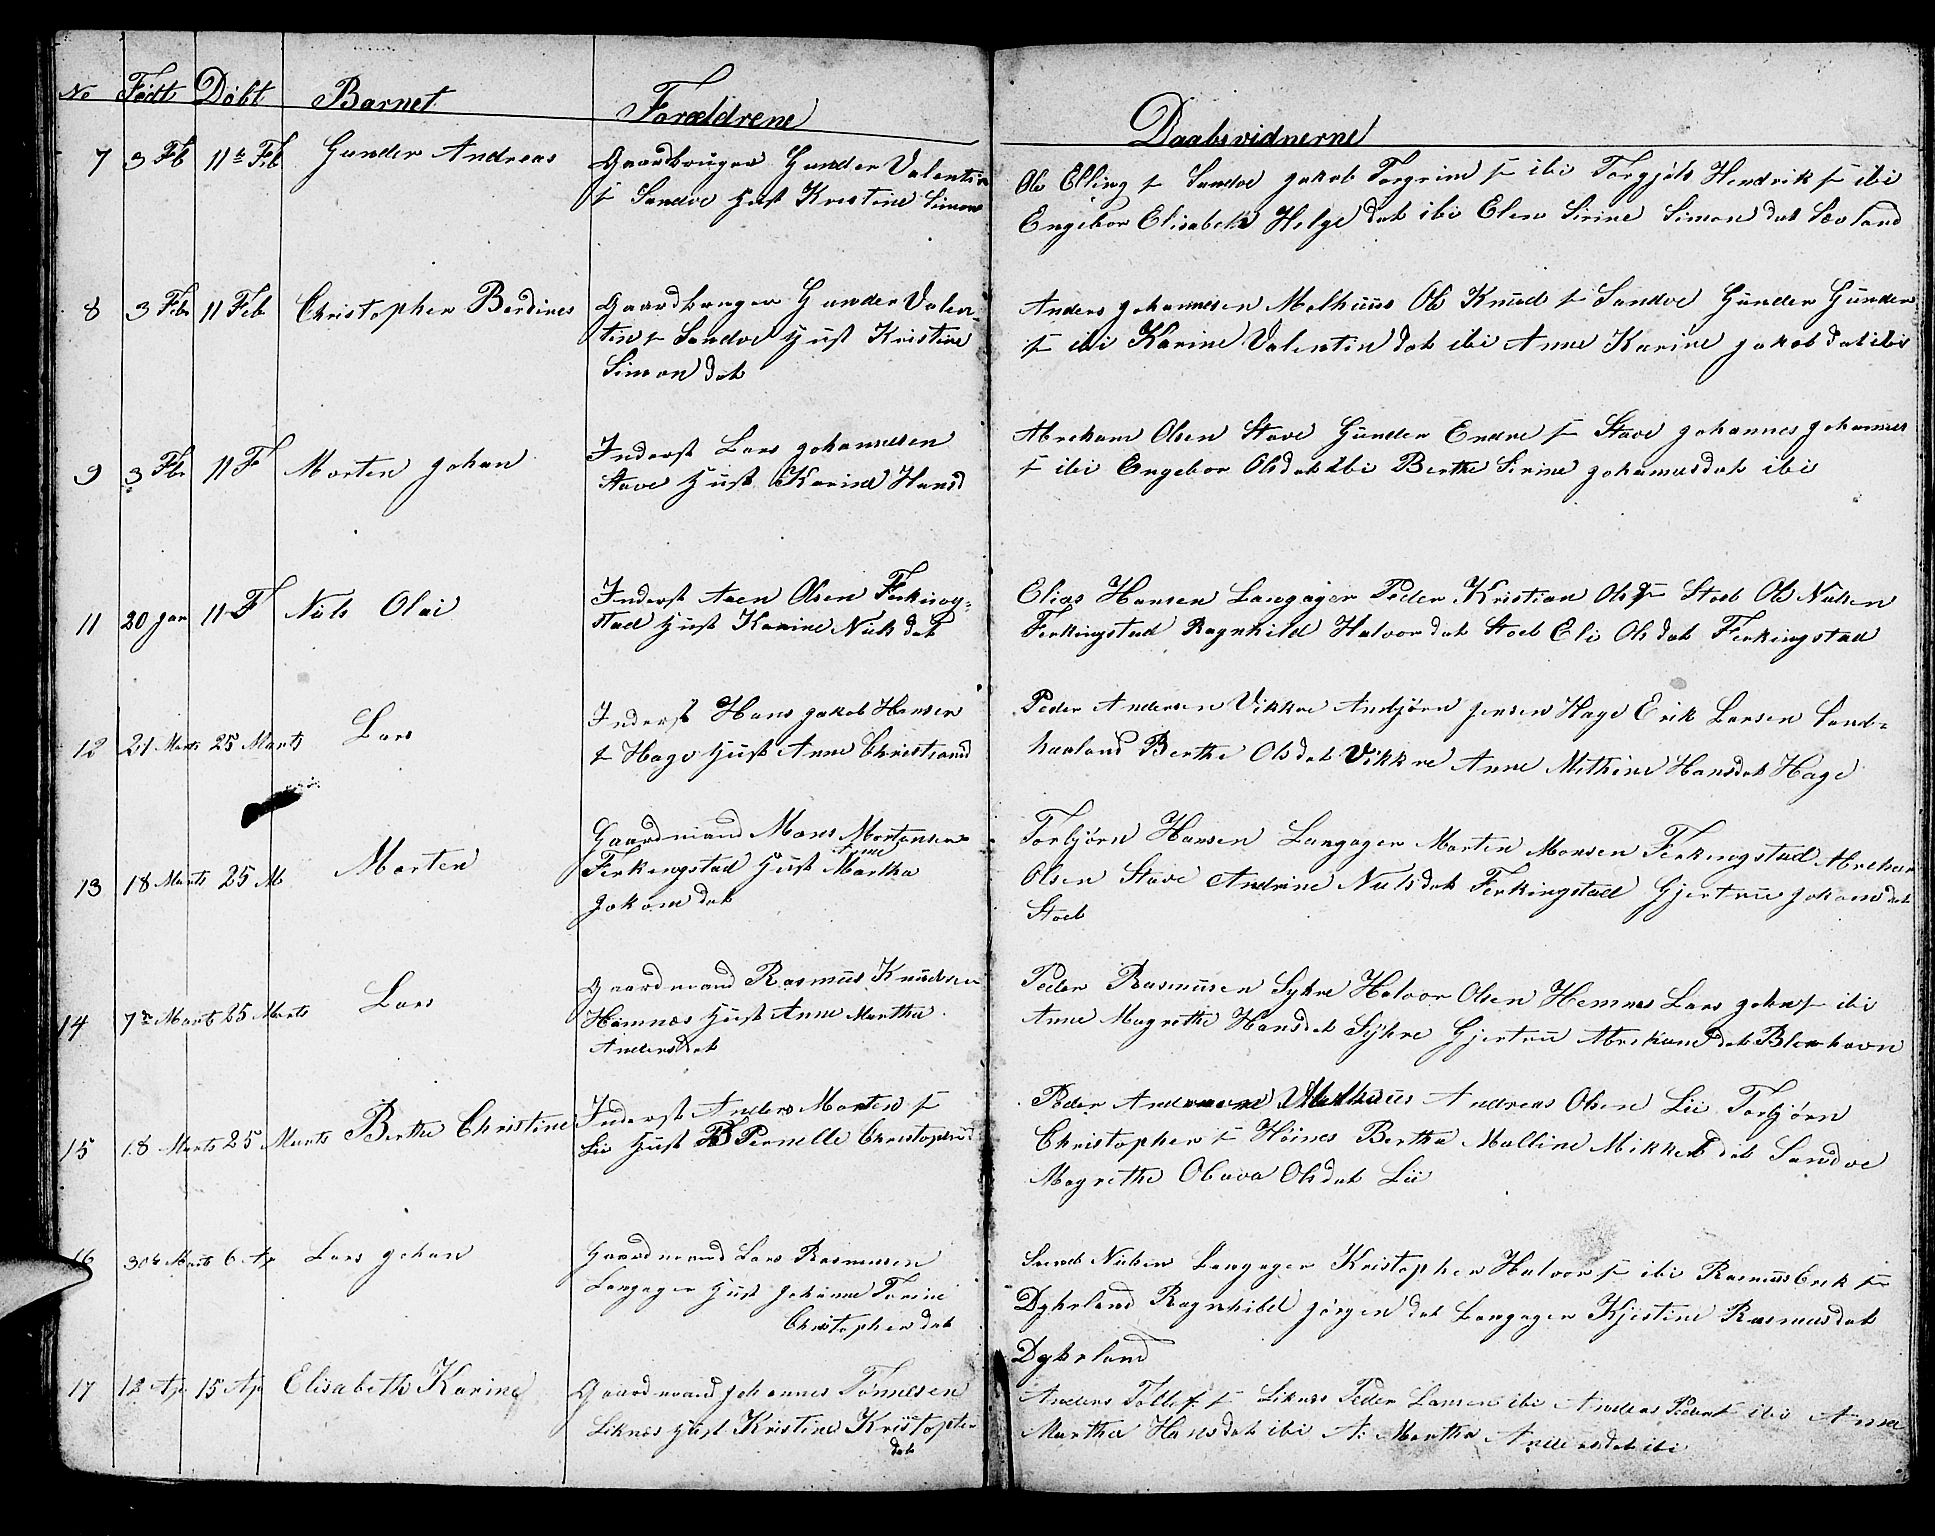 No Født Døbt Barnet Forældrene
Daabsvidnerne
7 3 Fb 11te Fb Gunder Andreas
Gaardbruger Gunder Valentin
s Sandve Hust Kristine Simons
Ole Elling s Sandve Jakob Torgrim s ibi Torgjøls Hendrik s ibi
Engebor Elisabeth Helge dat ibi Elen Sirine Simon dat Sæv land
8 3 Feb 11 Feb Christopher Berdines
Gaardbruger Gunder Valen-
tin s Sandve Hust Kristine
Simon dat
Anders Johannesen Melhuus Ole Knud s Sandve Gunder Gunder
s ibi Karine Valentin dat ibi Anne Karine Jakob dat ibi
9 3 Feb 11 F Morten Johan
Inderst Lars Johannesen
Stave Hust Karine Hansd
Abreham Olsen Stave Gunder Endre s Stave Johannes Johannes
s ibi Engebor Olsdat ibi Berthe Sirine Johannesdat ibi
11 20 Jan 11 F Niels Olai
Inderst Aaen Olsen Ferking=
stad Hust Karine Niels dat
Elias Hansen Langager Peder Kristian Ols s Stol Ole Nielsen
Ferkingstad Ragnhild Halvor dat Stol Eli Ols dat Ferkingstad
12 21 Marts 25 Marts Lars
Inderst Hans Jakob Hansen
s Hage Hust Anne Christiansd
Peder Andersen Vikkre Anbjørn Jensen Hage Erik Larsen Sand=
haaland Berthe Olsdat Vikkre Anne Methine Hansdat Hage
13 18 Marts 25 M Morten
Gaardmand Mons Mortensen
Ferkingstad Hust Martha
Jokom dat
Torbjørn Hansen Langager Morten Monsen Ferkingstad Abreham
Olsen Stave Andrine Nielsdat Ferkingstad Gjertrue Jokomsdat
Stol
14 7de Marts 25 Marts Lars
Gaardmand Rasmus Knudsen
Hemnes Hust Anne Martha
Andersdat
Peder Rasmusen Syhre Halvor Olsen Hemnes Lars John s ibi
Anne Magrethe Hansdat Syhre Gjertrue Abrehamsdat Blerhavn
15 18 Marts 25 Marts Berthe Christine
Inderst Anders Morten s
Lie Hust Pernelle Christophersd
Peder Melhuus Andreas Olsen Lie Torbjørn
Christopher s Høines Bertha Malline Mikkel dat Sandve
Magrethe Olava Olsdat Lie
16 30te Marts 6 Ap Lars Johan
Gaardmand Lars Rasmusen
Langager Hust Johanne Torine
Christopher dat
Svend Nielsen Langager Kristopher Halvor s ibi Rasmus Erik s
Dyhrland Ragnhild Jørgen dat Langager Kjistine Rasmusdat
Dyhrland
17 12 Ap 15 Ap Elisabeth Karine
Gaardmand Johannes Tønnesen
Liknes Hust Kristine Kristopher
dat
Anders Tollef s Liknes Peder Larsen ibi Anders Peder s ibi Anna
Martha Hansdat ibi A: Martha Andersdat ibi